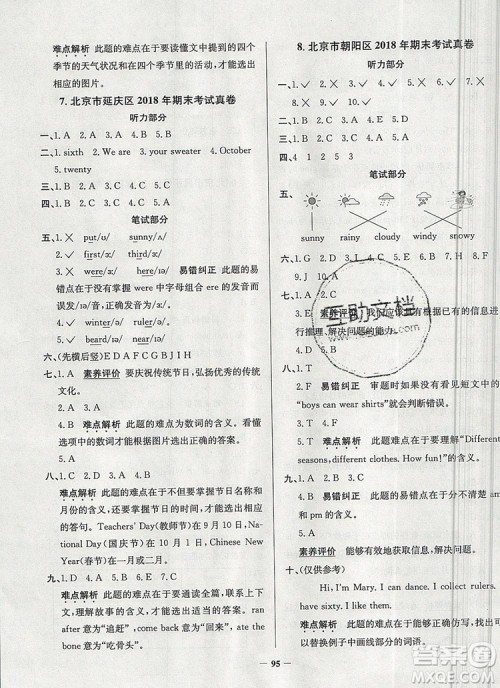 难点解析 此题的难点在于要读懂文中提到的四个
季节的天气状况和在四个季节里的活动,才能选
出相应的图片。
7. 北京市延庆区 2018 年期末考试真卷
听力部分
一、1. A 2. A 3. B 4. A 5. B
二、1. sixth 2. We are 3. your sweater 4. October
5. twenty
三、1. B 2. C 3. C 4. B 5. A
笔试部分
8. 北京市朝阳区 2018 年期末考试真卷
听力部分
笔试部分
sunny rainy cloudy windy
六、1. G
9. J 10. A
七、1. B 2. E 素养评价
行推理、解决问题的能力。
八、1. T
2. F 易错纠正 审题时一定要读懂图意,本题的
“boys can wear shirts”就会判断错误。
3. T 难点解析 此题的难点在于理解“Different
seasons, different clothes. How fun!”的含义。
4. T 5. F
九、1. B 易错纠正 此题的易错点在于容易混淆 am
和 pm 的含义。
2. C 3. A 4. A
5. C
素养评价 能够有效地获取信息,解决问题。
十、(仅供参考)
Hi, I'm Mary. I can dance. I collect rulers. I
have sixty. I like them.
难点解析 此题的难点在于能选出合适的词语,
以替换例子中画线部分的词语。
五、1. ╳ put/u/ sunny/ʌ/
2. ✓ first/ɜː/ third/ɜː/
3. ╳ were/ɜː/ here/ɪə/ 易错纠正 此题的易
错点在于没有掌握 were 中字母组合 ere 的发音而
误判。发音分别为/ɜː/、/ɪə/,发音不同。
4. ✓ winter/ə/ ruler/ə/
5. ✓ beard/ɪə/ near/ɪə/
六、(先横后竖)E D A F C G B J I H
七、1. A 素养评价 要庆祝传统节日,弘扬优秀的传统
文化。
2. B 难点解析 此题的难点为数词的含义。看懂
选项中的数字才能根据图片选出正确的答案。
3. C 4. D
5. A
八、1. C 2. D 3. A 4. B
难点解析 此题的难点在于不但要掌握节日名称和
月份的含义,还要掌握节日对应的时间,才能找到相
应的答句。Teachers' Day(教师节)在 9 月 10 日,Na-
tional Day(国庆节)在 10 月 1 日,Chinese New
Year(春节)在一月或二月。
九、1. D 2. A 3. E 4. C 5. B
难点解析 此题的难点在于要通读全篇,联系上下
文,理解故事的含义,才能选出适当的答案。ran
after 意为“追赶”,come back 意为“回来”,ate
the bone 意为“吃骨头”。
95
互助文档
答案圈
MXQE.COM